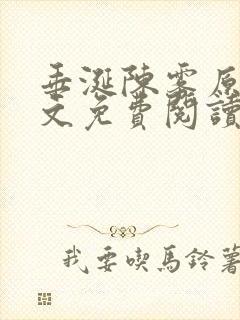 垂涎陳霧原
文免費閱讀
我要喫馬鈴薯